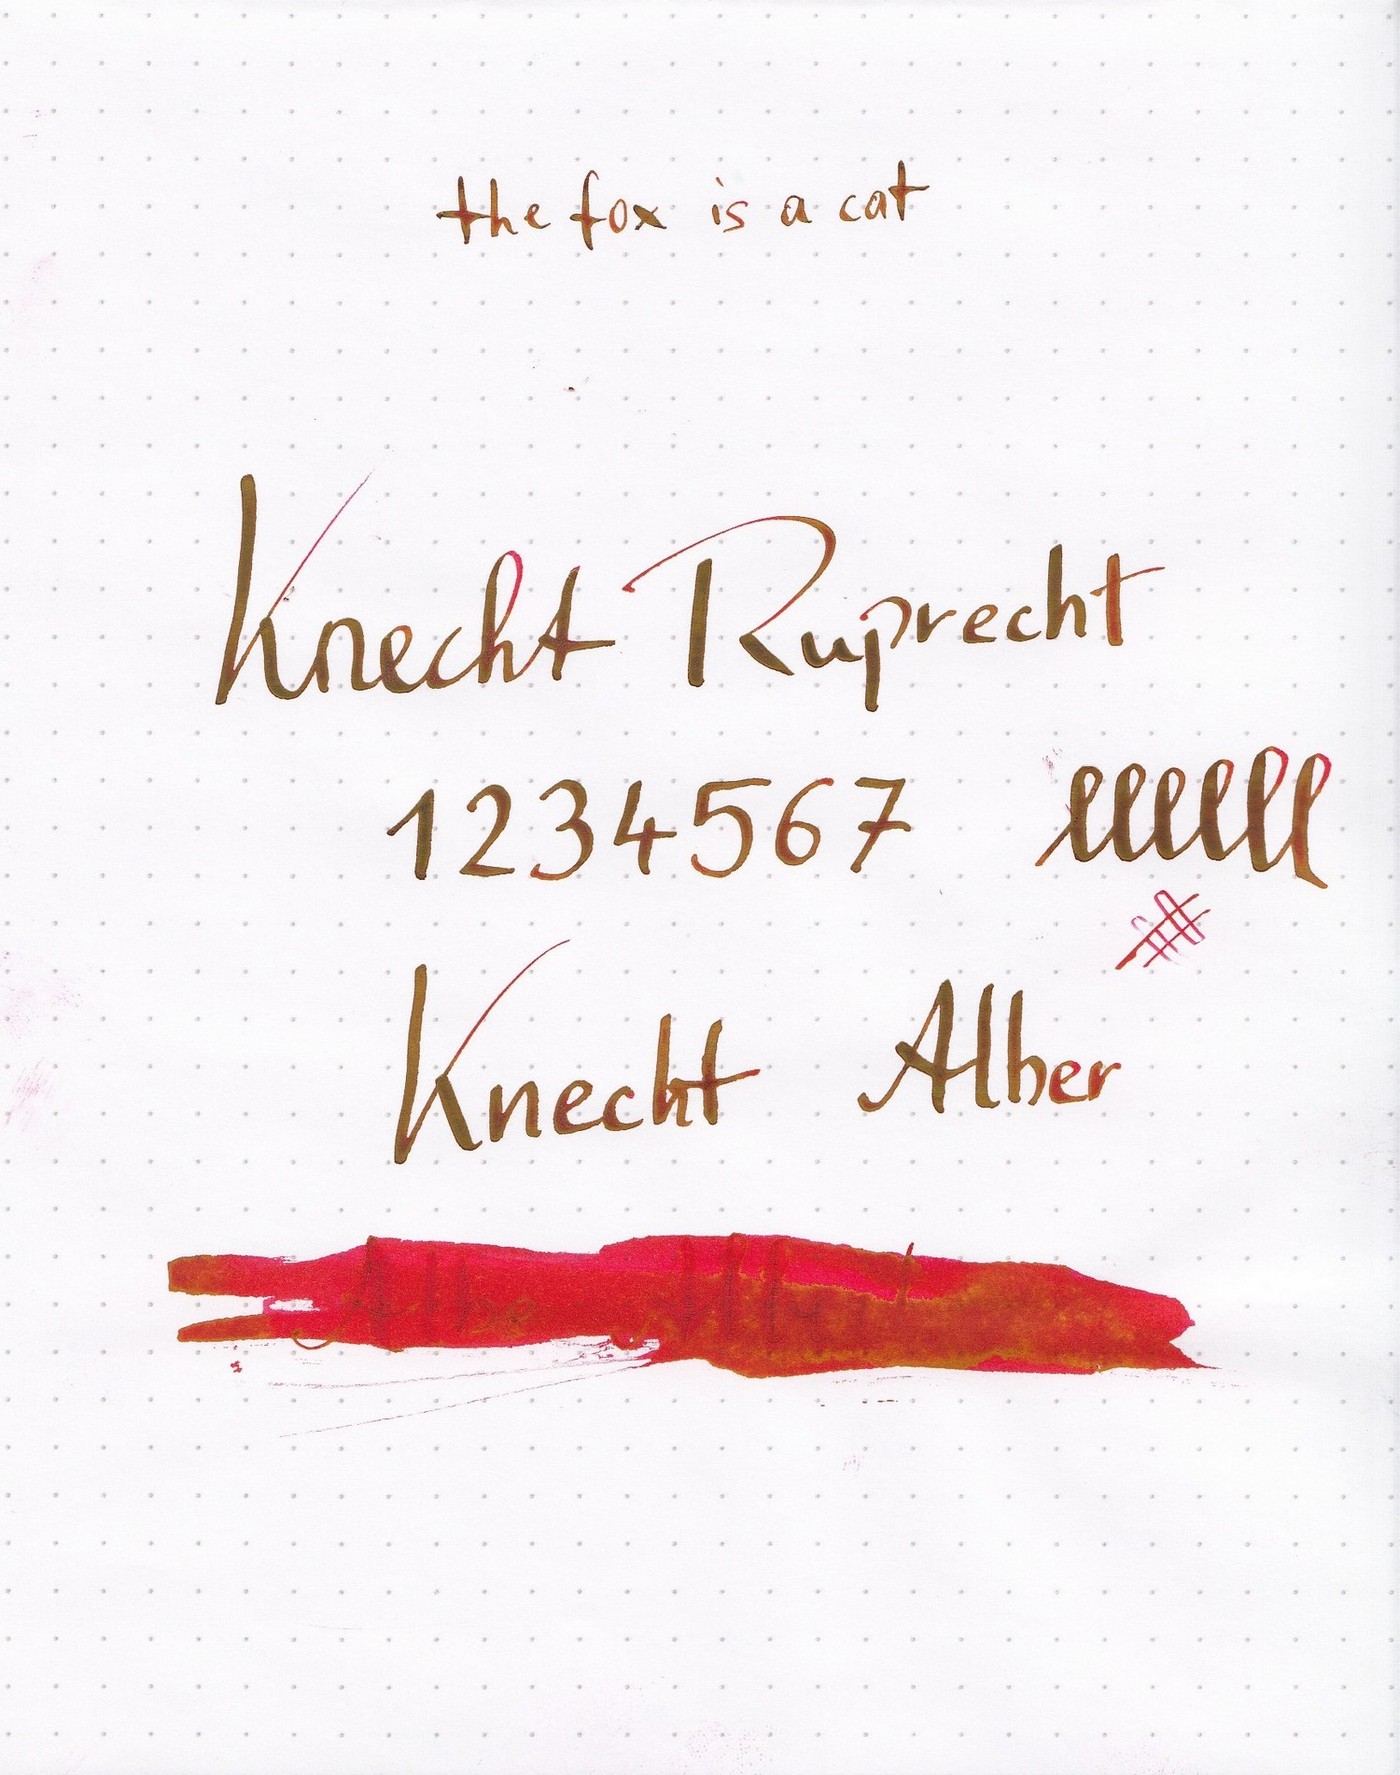 the fox is a cat
Knecht Ruprecht
1234567
Knecht Alber